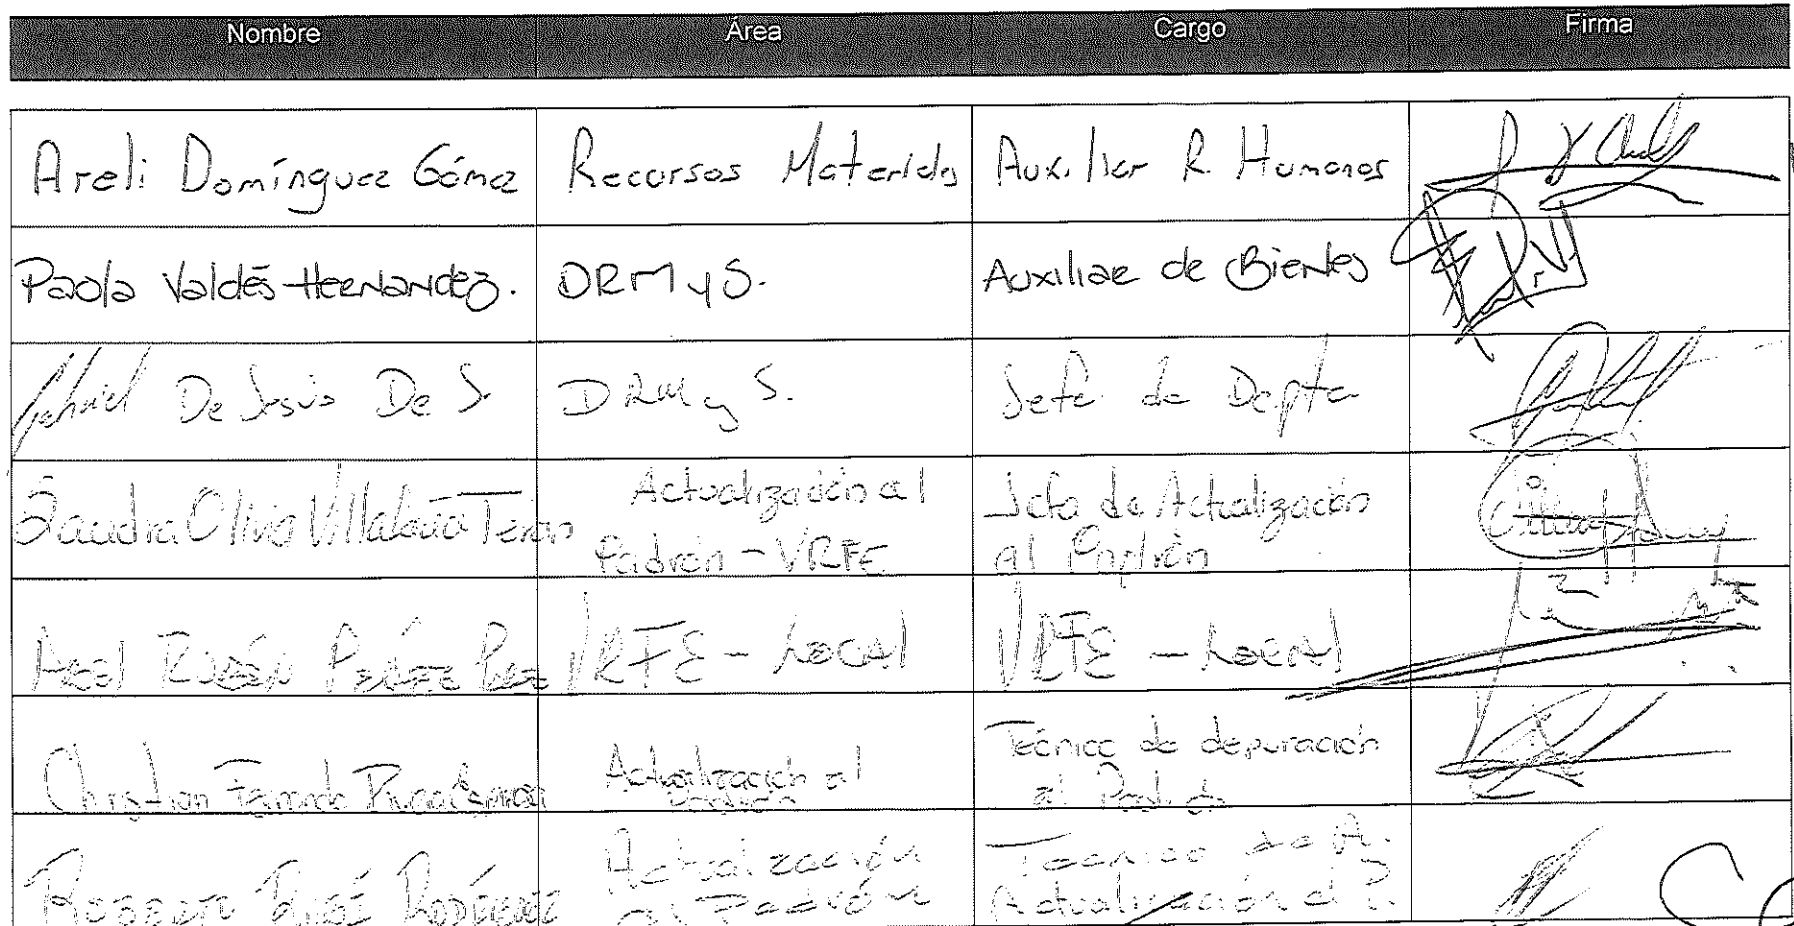 Nombre Área Cargo Firma
Areli Domínguez Gómez Recursos Materiales Auxiliar R. Humanos
Paola Valdés Hernández. DRM y S. Auxiliar de Bienes
Gabriel De Jesús De J. DRM y S. Jefe de Depto
Sandra Olivia Villalova Terán Actualización al Jefa de Actualización
Padrón - VRFE al Padrón
Rubén VRFE - Local VRFE - Local
Christian Fernando Actualización al Técnico de depuración
Padrón al
Roberto Rodríguez Actualización Técnico de A.
al Padrón Actualización al P.